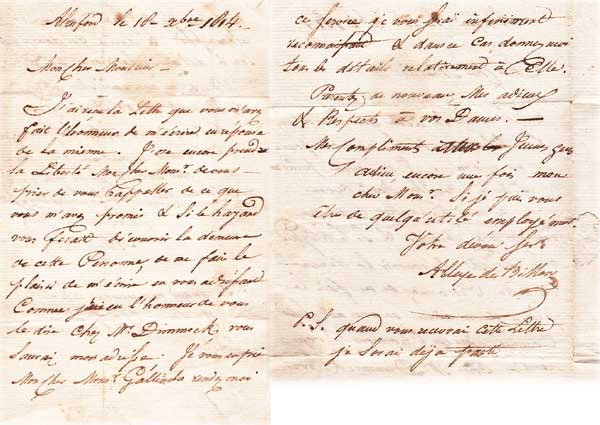 le 18 xbre 1814.
Mon Cher Monsieur —
J'ai reçu la Lettre que vous m'avez
fait l'honneur de m'écrire en réponse
de la mienne. J'ose encore prendre
la Liberté Mon cher Monsr. de vous
prier de vous rappeller de ce que
vous m'avez promis & si le hazard
vous ferait découvrir la demeure
de cette Personne, de me faire le
plaisir de m'écrire en vous adressant
Comme j'ai eu l'honneur de vous
le dire Chez Mr. Dimmock, vous
saurai mon adresse. Je vous en prie
Mon cher Monsr. rendez moi
ce service je vous serai infiniment
reconnaissant & dans ce Cas donnez moi
tous les détails relativement à Elle.
de nouveau Mes adieux
& Respects à vos Dames. —
Mes Compliments Jeunes gens
adieu encore une fois mon
cher Monsr. Si je puis vous
être de quelqu'utilité employé moi.
Votre devou Serv
de Billon
P. S. quand vous recevrai cette Lettre
je serai déja parti